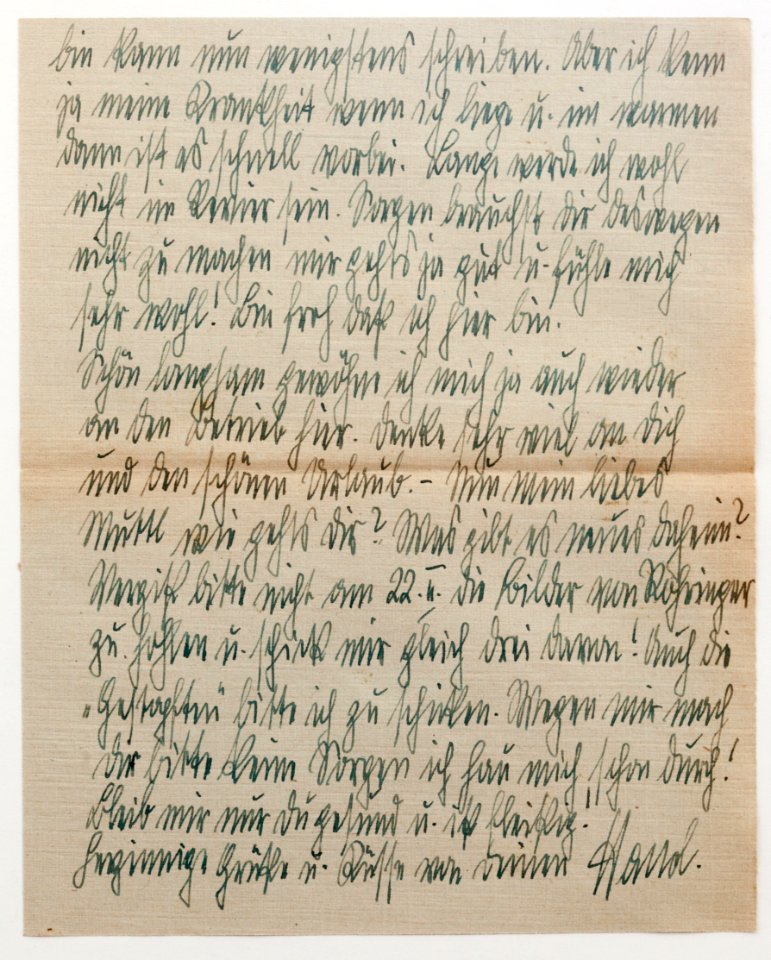 bin kann nun wenigstens schreiben. Aber ich kenn
ja meine Krankheit wenn ich liege u. im warmen
dann ist es schnell vorbei. Lange werde ich wohl
nicht im Revier sein. Sorgen brauchst dir deswegen
nicht zu machen mir gehts ja gut u. fühle mich
sehr wohl! Bin froh daß ich hier bin.
Schön langsam gewöhne ich mich ja auch wieder
an den Betrieb hier. Denke sehr viel an Dich
und den schönen Urlaub. - Nun mein liebes
Muttl wie gehts Dir? Was gibt es neues daheim?
Vergiß bitte nicht am 22. II. die Bilder von
zu hohlen u. schick mir gleich drei davon! Auch die
bitte ich zu schicken. Wegen mir mach
dir bitte keine Sorgen ich hau mich schon durch!
Bleib mir nur du gesund u. iß fleißig!
Herzinnige Grüße u. Küsse von Deinen